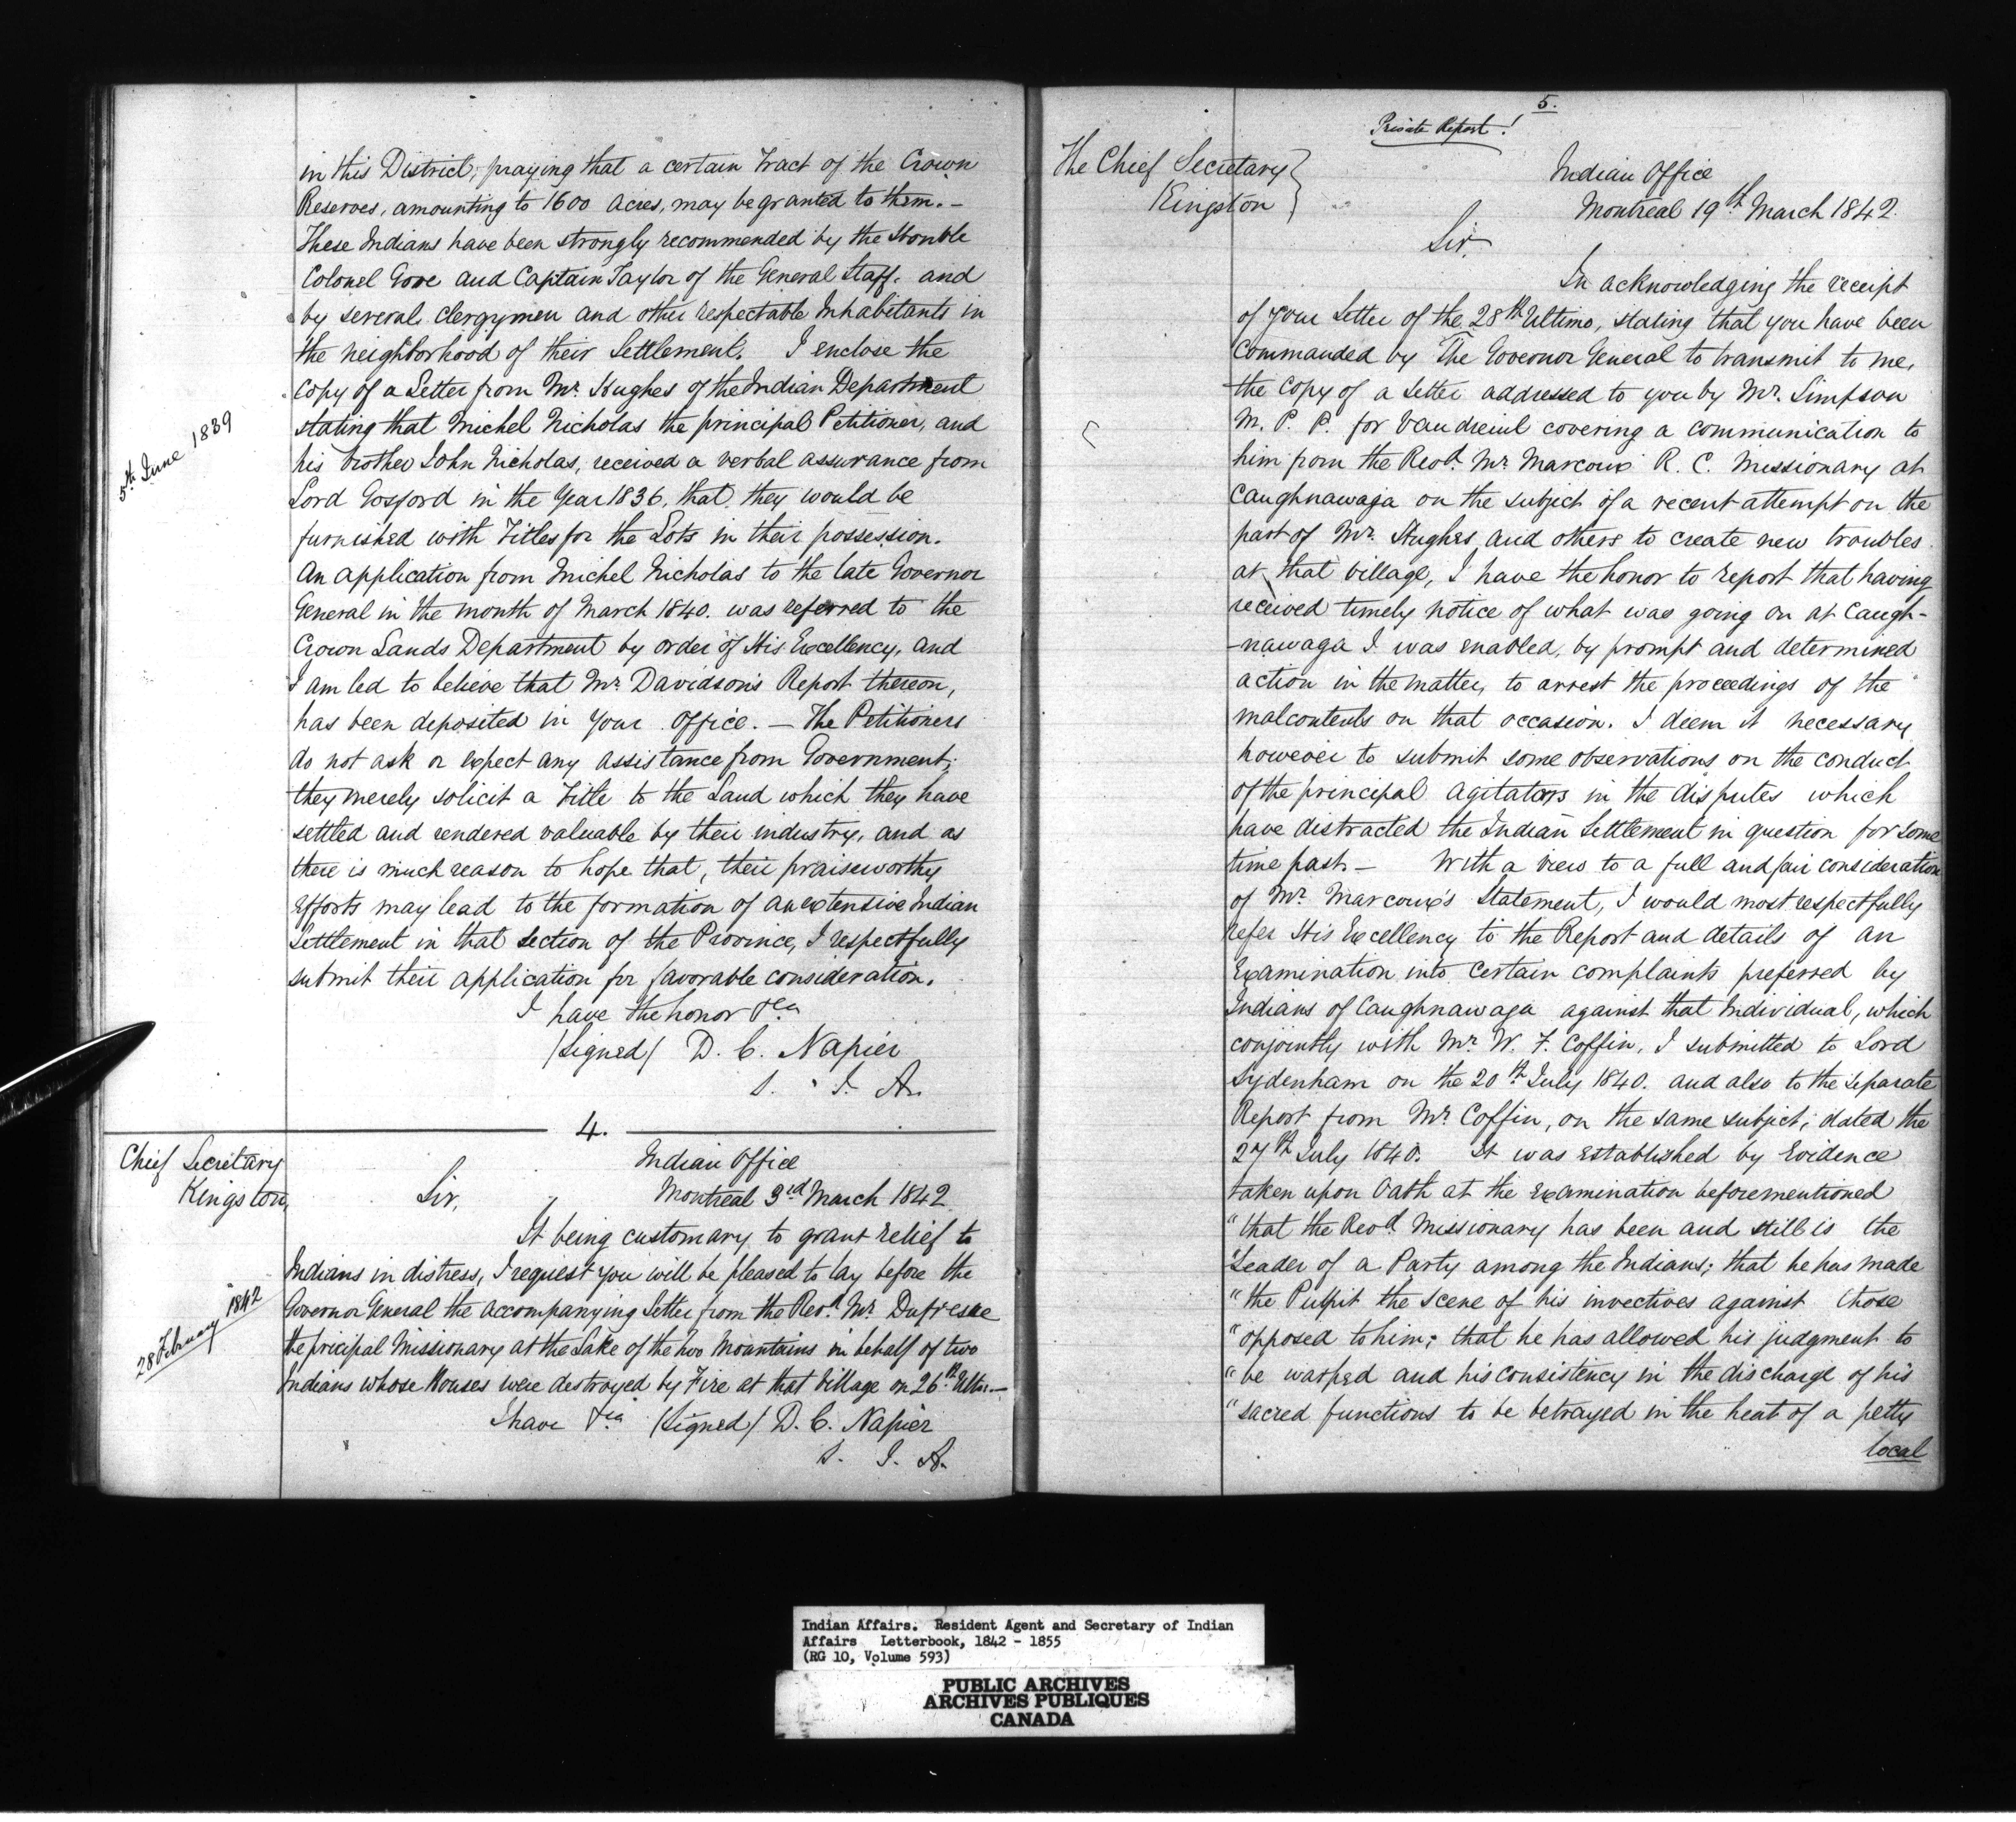 in this District, praying that a certain Tract of the Crown
Reserves, amounting to 1600 Acres, may be granted to them. –
These Indians have been strongly recommended by the Honble
Colonel Gore and Captain Taylor of the General Staff. and
by several clergymen and other respectable Inhabitants in
the neighborhood of their Settlement. I enclose the
5th June 1839
copy of a Letter from Mr. Hughes of the Indian Department
stating that Michel Nicholas the principal Petitioner, and
his brother John Nicholas, received a verbal assurance from
Lord Gosford in the Year 1836, that they would be
furnished with Titles for the Lots in their possession.
An application from Michel Nicholas to the late Governor
General in the month of March 1840. was referred to the
Crown Lands Department by order of His Excellency, and
I am led to believe that Mr. Davidson's Report thereon,
has been deposited in Your Office. – The Petitioners
do not ask or expect any assistance from Government;
they merely solicit a Title to the Land which they have
settled and rendered valuable by their industry, and as
there is much reason to hope that, their praiseworthy
efforts may lead to the formation of an extensive Indian
Settlement in that section of the Province, I respectfully
submit their application for favorable consideration.
I have the honor &ca
(Signed) D. C. Napier
S. I. A.
4.
Chief Secretary
Kingston,
Indian Office
Sir, Montreal 3rd March 1842
It being customary to grant relief to
Indians in distress, I request you will be pleased to lay before the
28 February 1842
Governor General the accompanying Letter from the Revd. Mr. Dufresne
the pricipal Missionary at the Lake of the two Mountains in behalf of two
Indians whose Houses were destroyed by Fire at that Village on 26th Ulto. –
I have &ca (Signed) D. C. Napier
S. I. A.
5.
Private Report!
The Chief Secretary
Kingston
Indian Office
Montreal 19th March 1842.
Sir,
In acknowledging the receipt
of your Letter of the 28th Ultimo, stating that you have been
commanded by The Governor General to transmit to me,
the copy of a Letter addressed to you by Mr. Simpson
M. P. P. for Vaudreuil covering a communication to
him from the Revd. Mr. Marcoux R. C. Missionary at
Caughnawaga on the subject of a recent attempt on the
part of Mr. Hughes and others to create new troubles
at that Village, I have the honor to report that having
received timely notice of what was going on at Caugh-
-nawaga I was enabled, by prompt and determined
action in the matter, to arrest the proceedings of the
malcontents on that occasion. I deem it necessary
however to submit some observations on the conduct
of the principal agitators in the disputes which
have distracted the Indian Settlement in question for some
time past – With a view to a full and fair consideration
of Mr. Marcoux's Statement, I would most respectfully
refer His Excellency to the Report and details of an
Examination into certain complaints preferred by
Indians of Caughnawaga against that Individual, which
conjointly with Mr. W. F. Coffin, I submitted to Lord
Sydenham on the 20th July 1840. and also to the separate
Report from Mr. Coffin, on the same subject; dated the
27th July 1840. It was established by Evidence
taken upon Oath at the examination beforementioned
"that the Revd. Missionary has been and still is the
"Leader of a Party among the Indians; that he has made
"the Pulpit the scene of his invectives against those
"opposed to him; that he has allowed his judgment to
"be warped and his consistency in the discharge of his
"sacred functions to be betrayed in the heat of a petty
local
Indian Affairs. Resident Agent and Secretary of Indian
Affairs Letterbook, 1842 - 1855
(RG 10, Volume 593)
PUBLIC ARCHIVES
ARCHIVES PUBLIQUES
CANADA